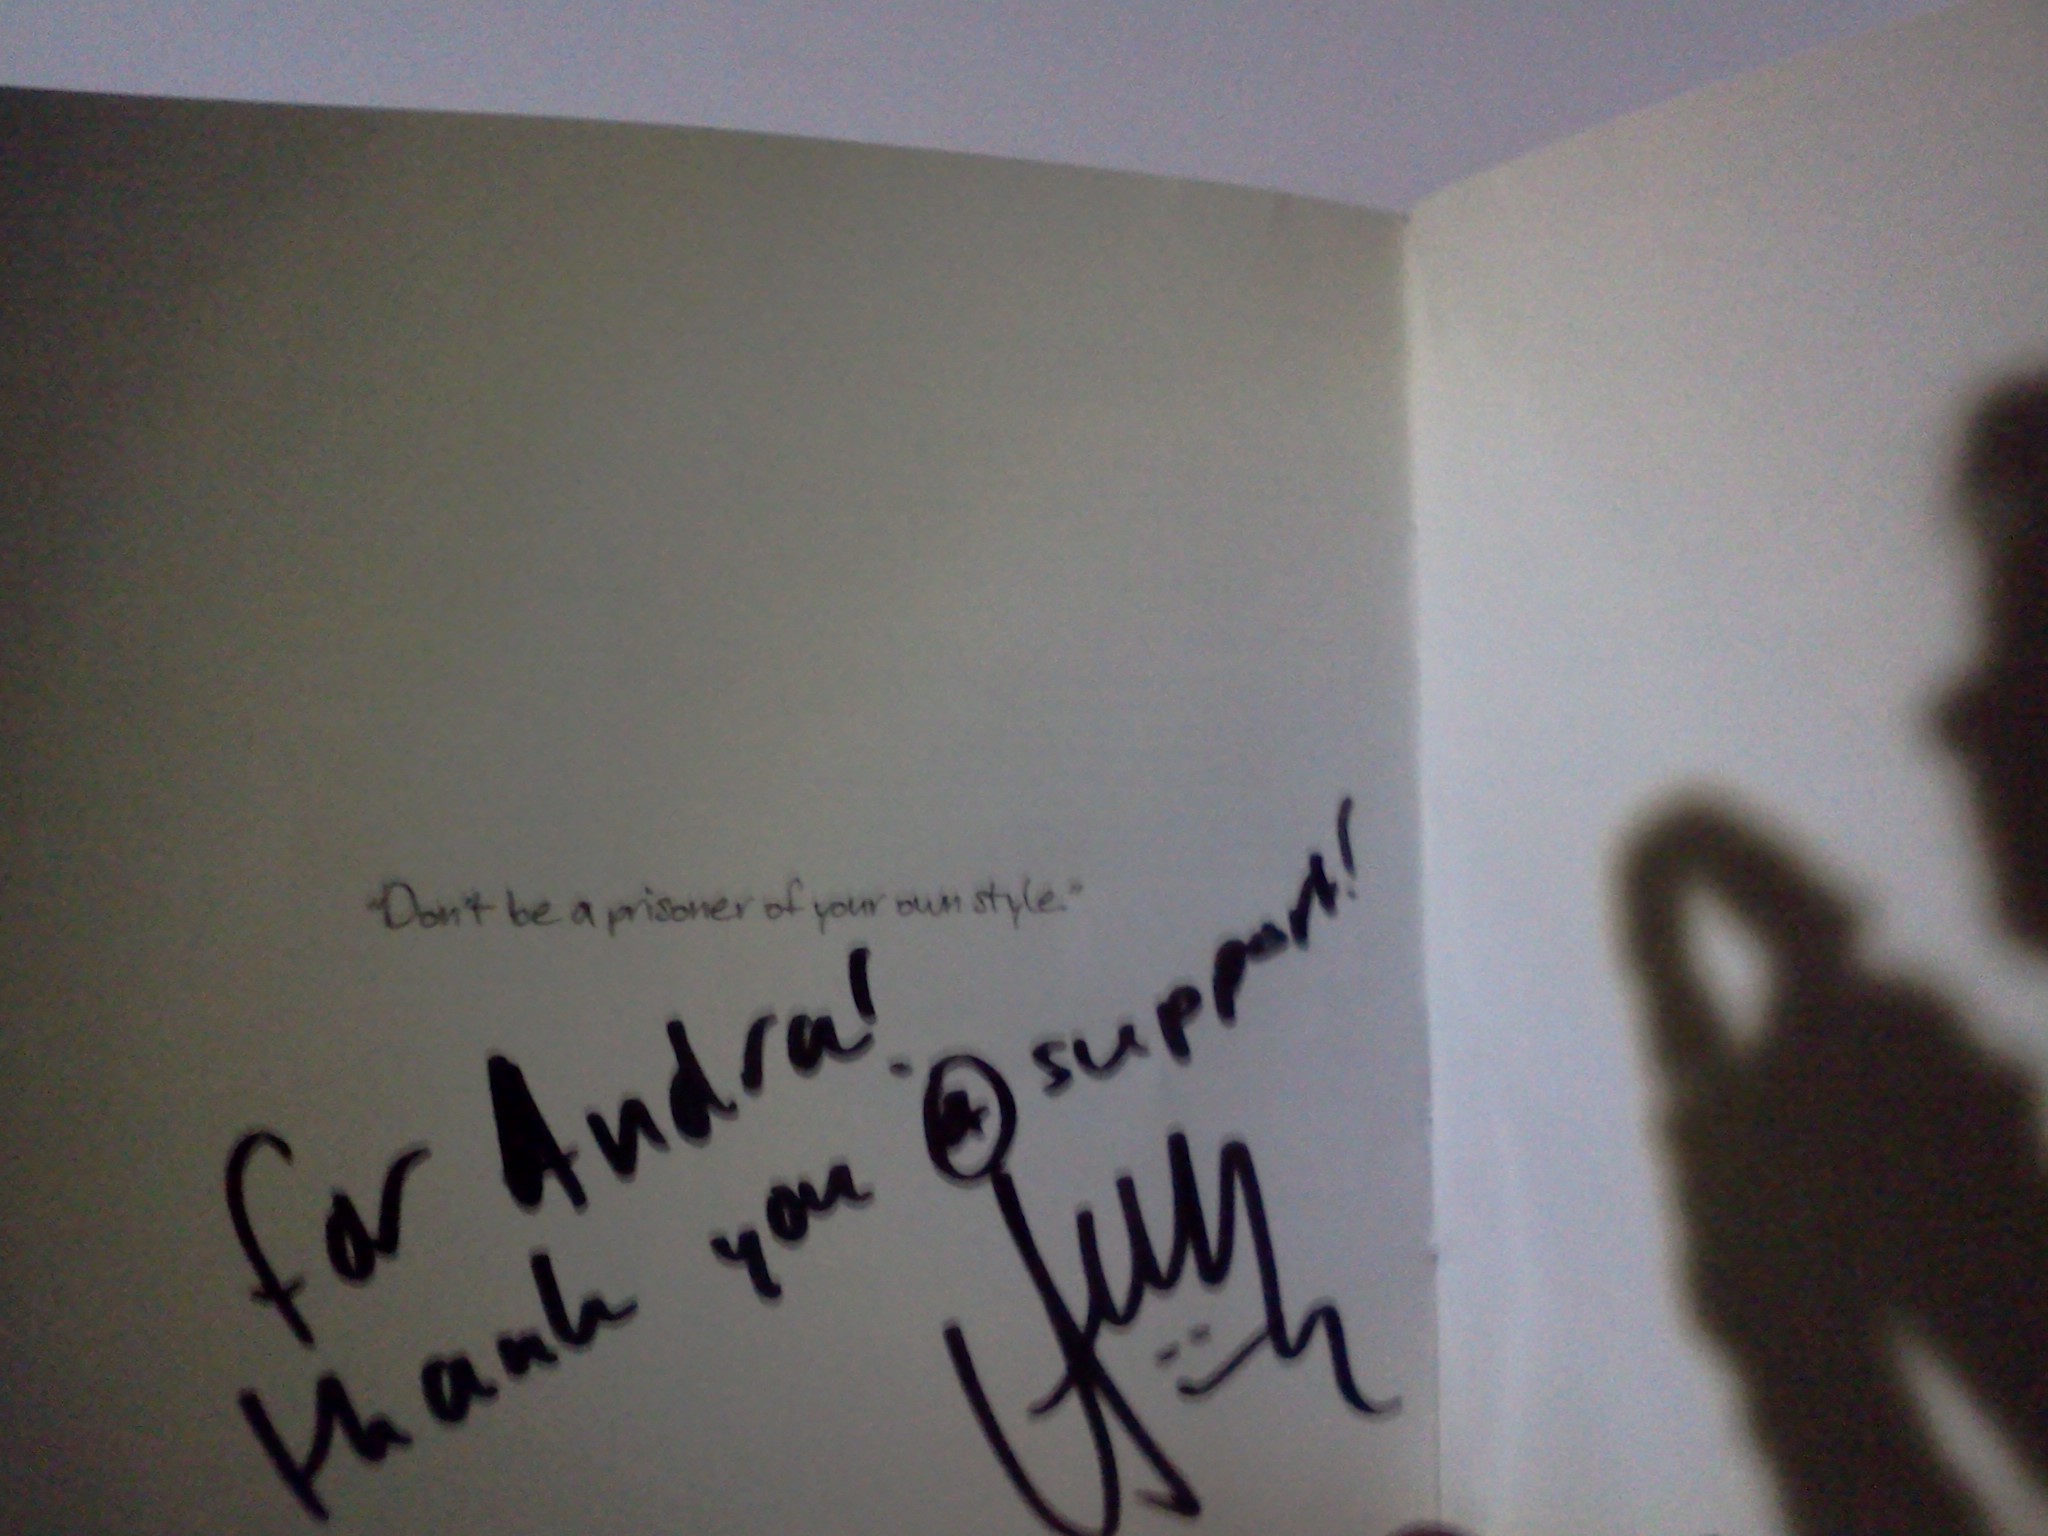 "Don't be a prisoner of your own style."
for Andra!
thank you support!